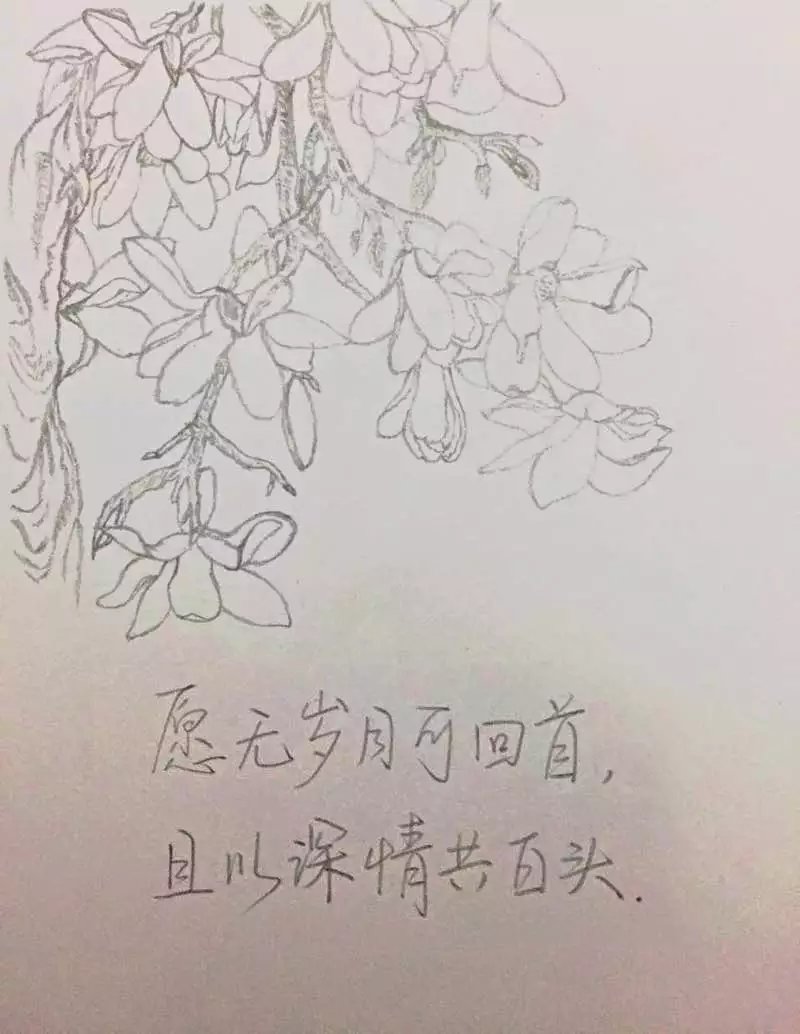 愿无岁月可回首,
且以深情共百头.